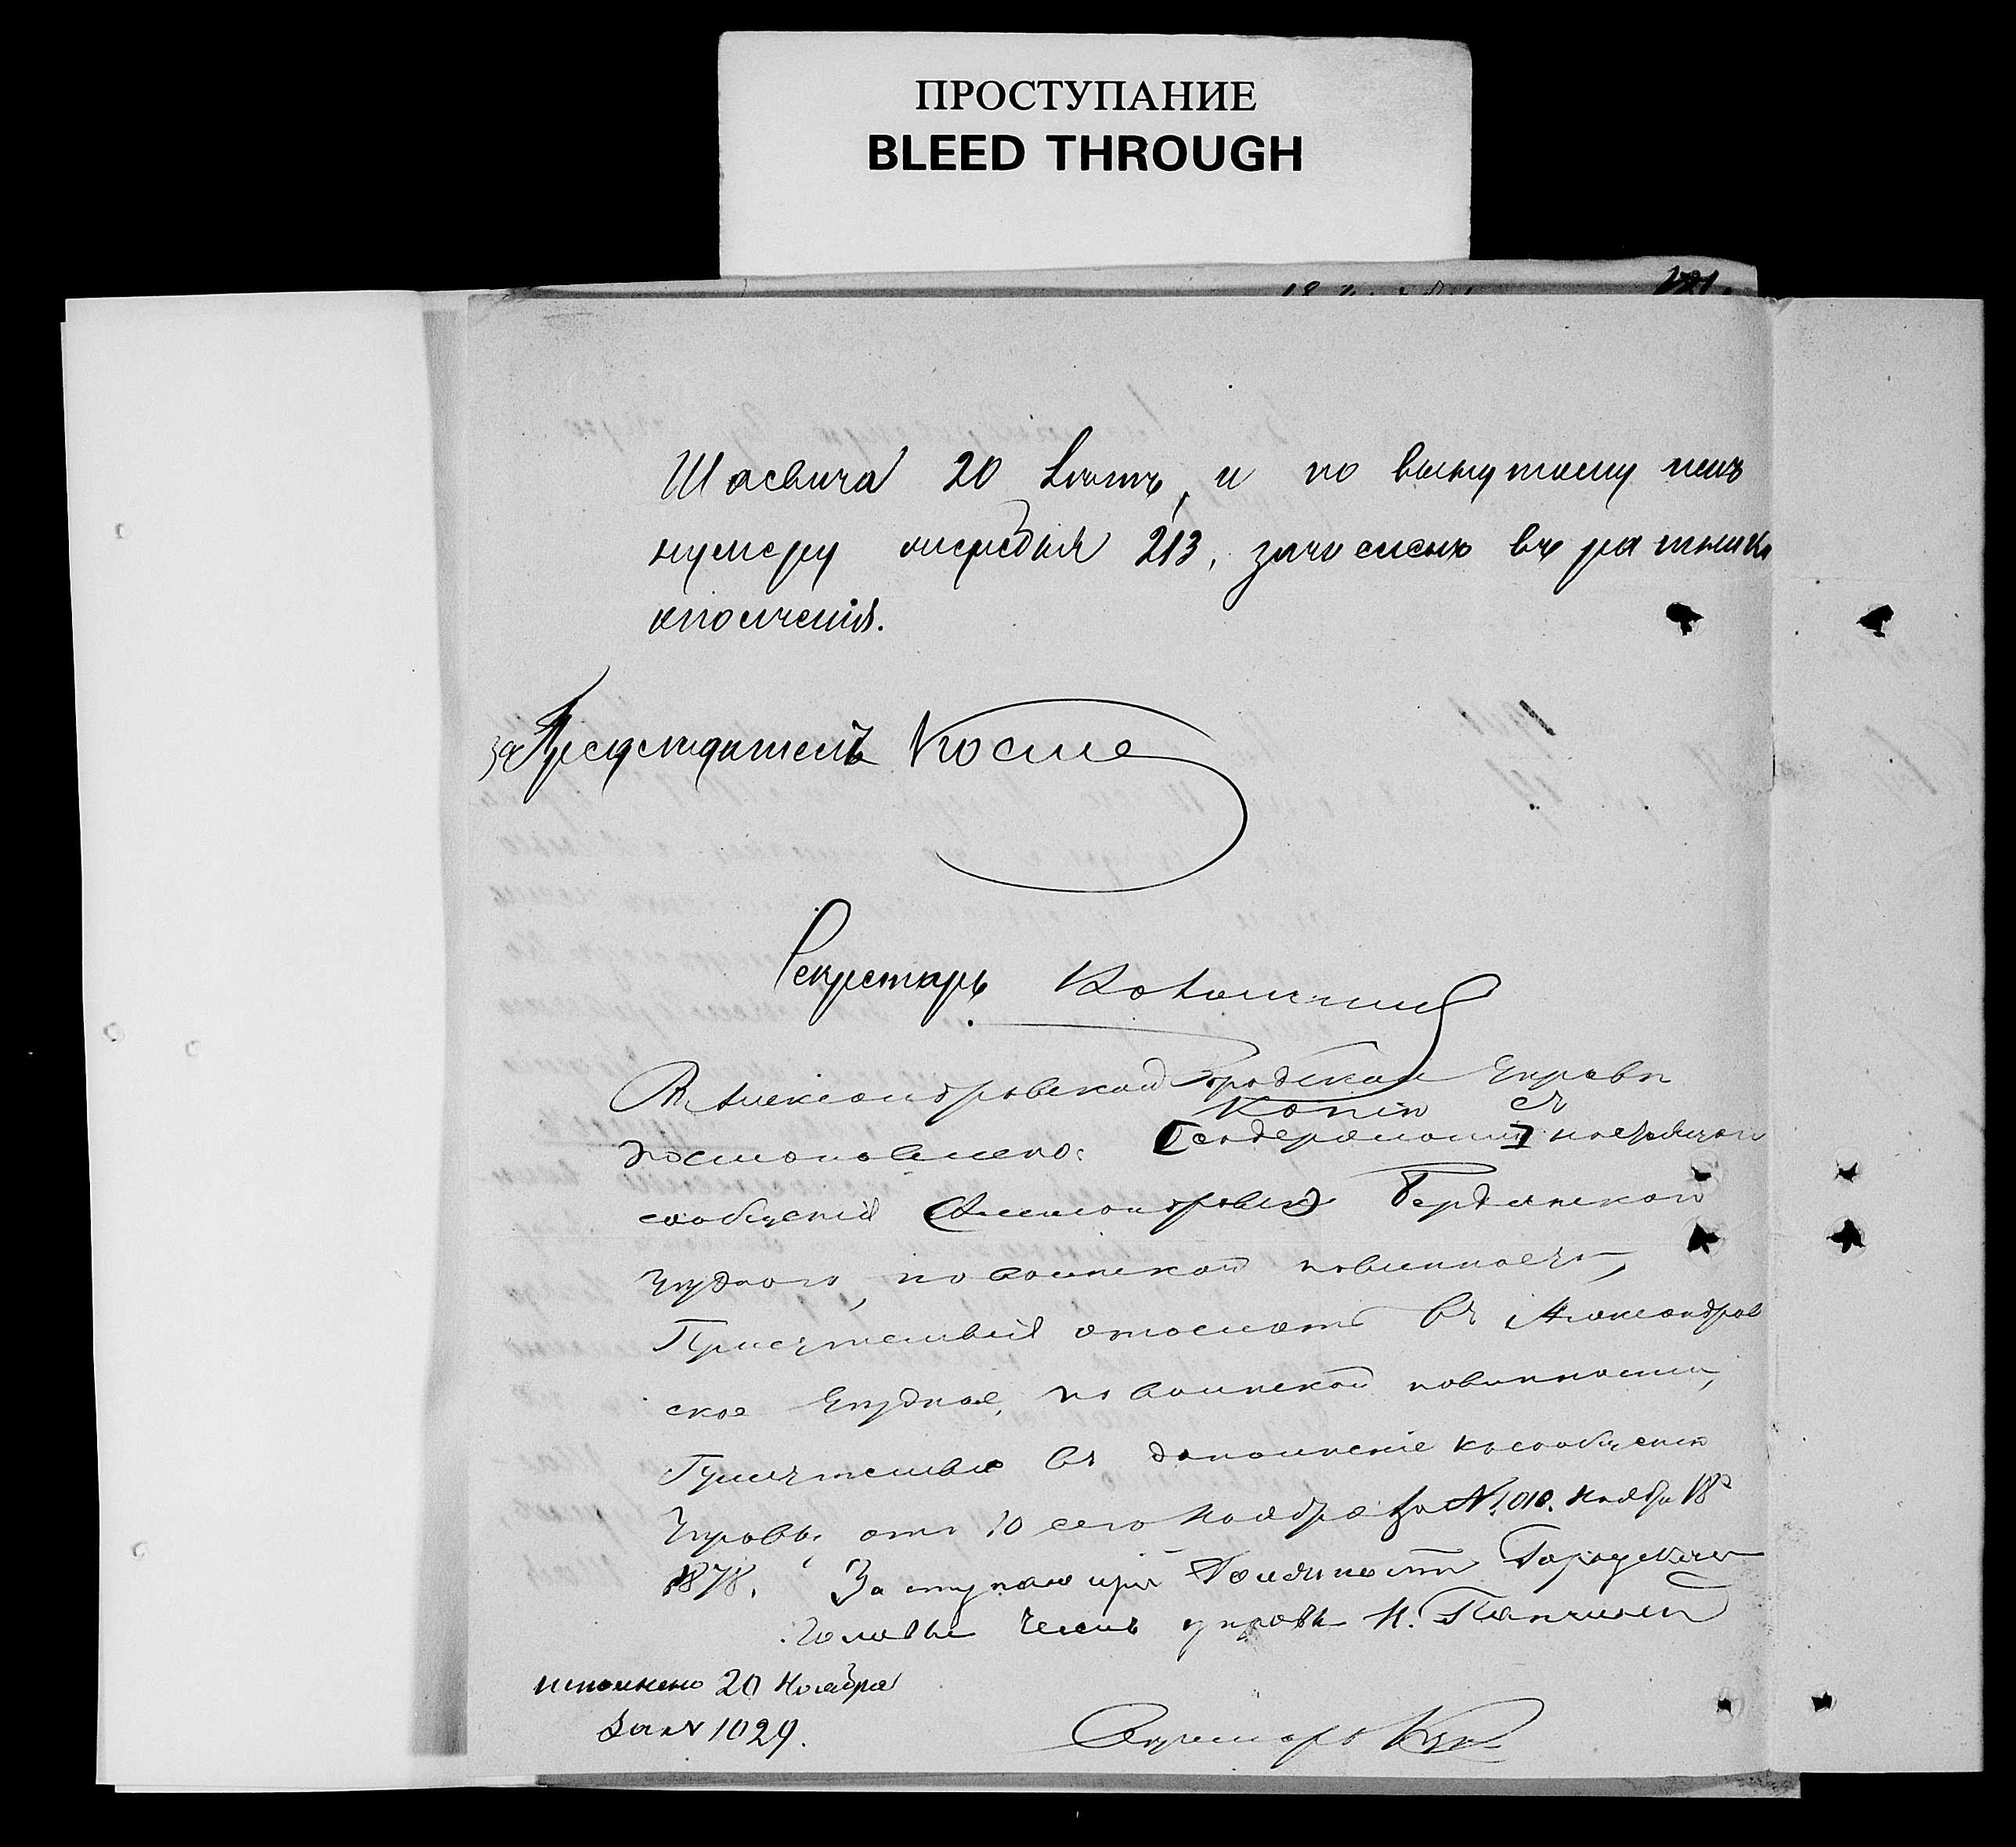 ПРОСТУПАНИЕ
BLEED THROUGH
121.
Шаевича 20 лѣтъ, и по вынутому имъ
нумеру жеребья 213, зачисленъ въ ратники
ополченія.
за Предсѣдателя
Секретарь
Въ Александровской Городской Управѣ
Копію съ
постановлено: [содержаніи] настоящаго
сообщенія (Александровск) Бердянскаго
Уѣзднаго, по воинской повинности,
Присутствія отослать въ Александров
ское Уѣздное, по воинской повинности,
Присутствіе въ дополненіе къ сообщенію
Управы отъ 10 сего Ноября за № 1010. Ноября 18
1878. Заступающій Должность Городскаго
Головы Членъ управы И.
исполнено 20 Ноября
За № 1029.
Секретарь